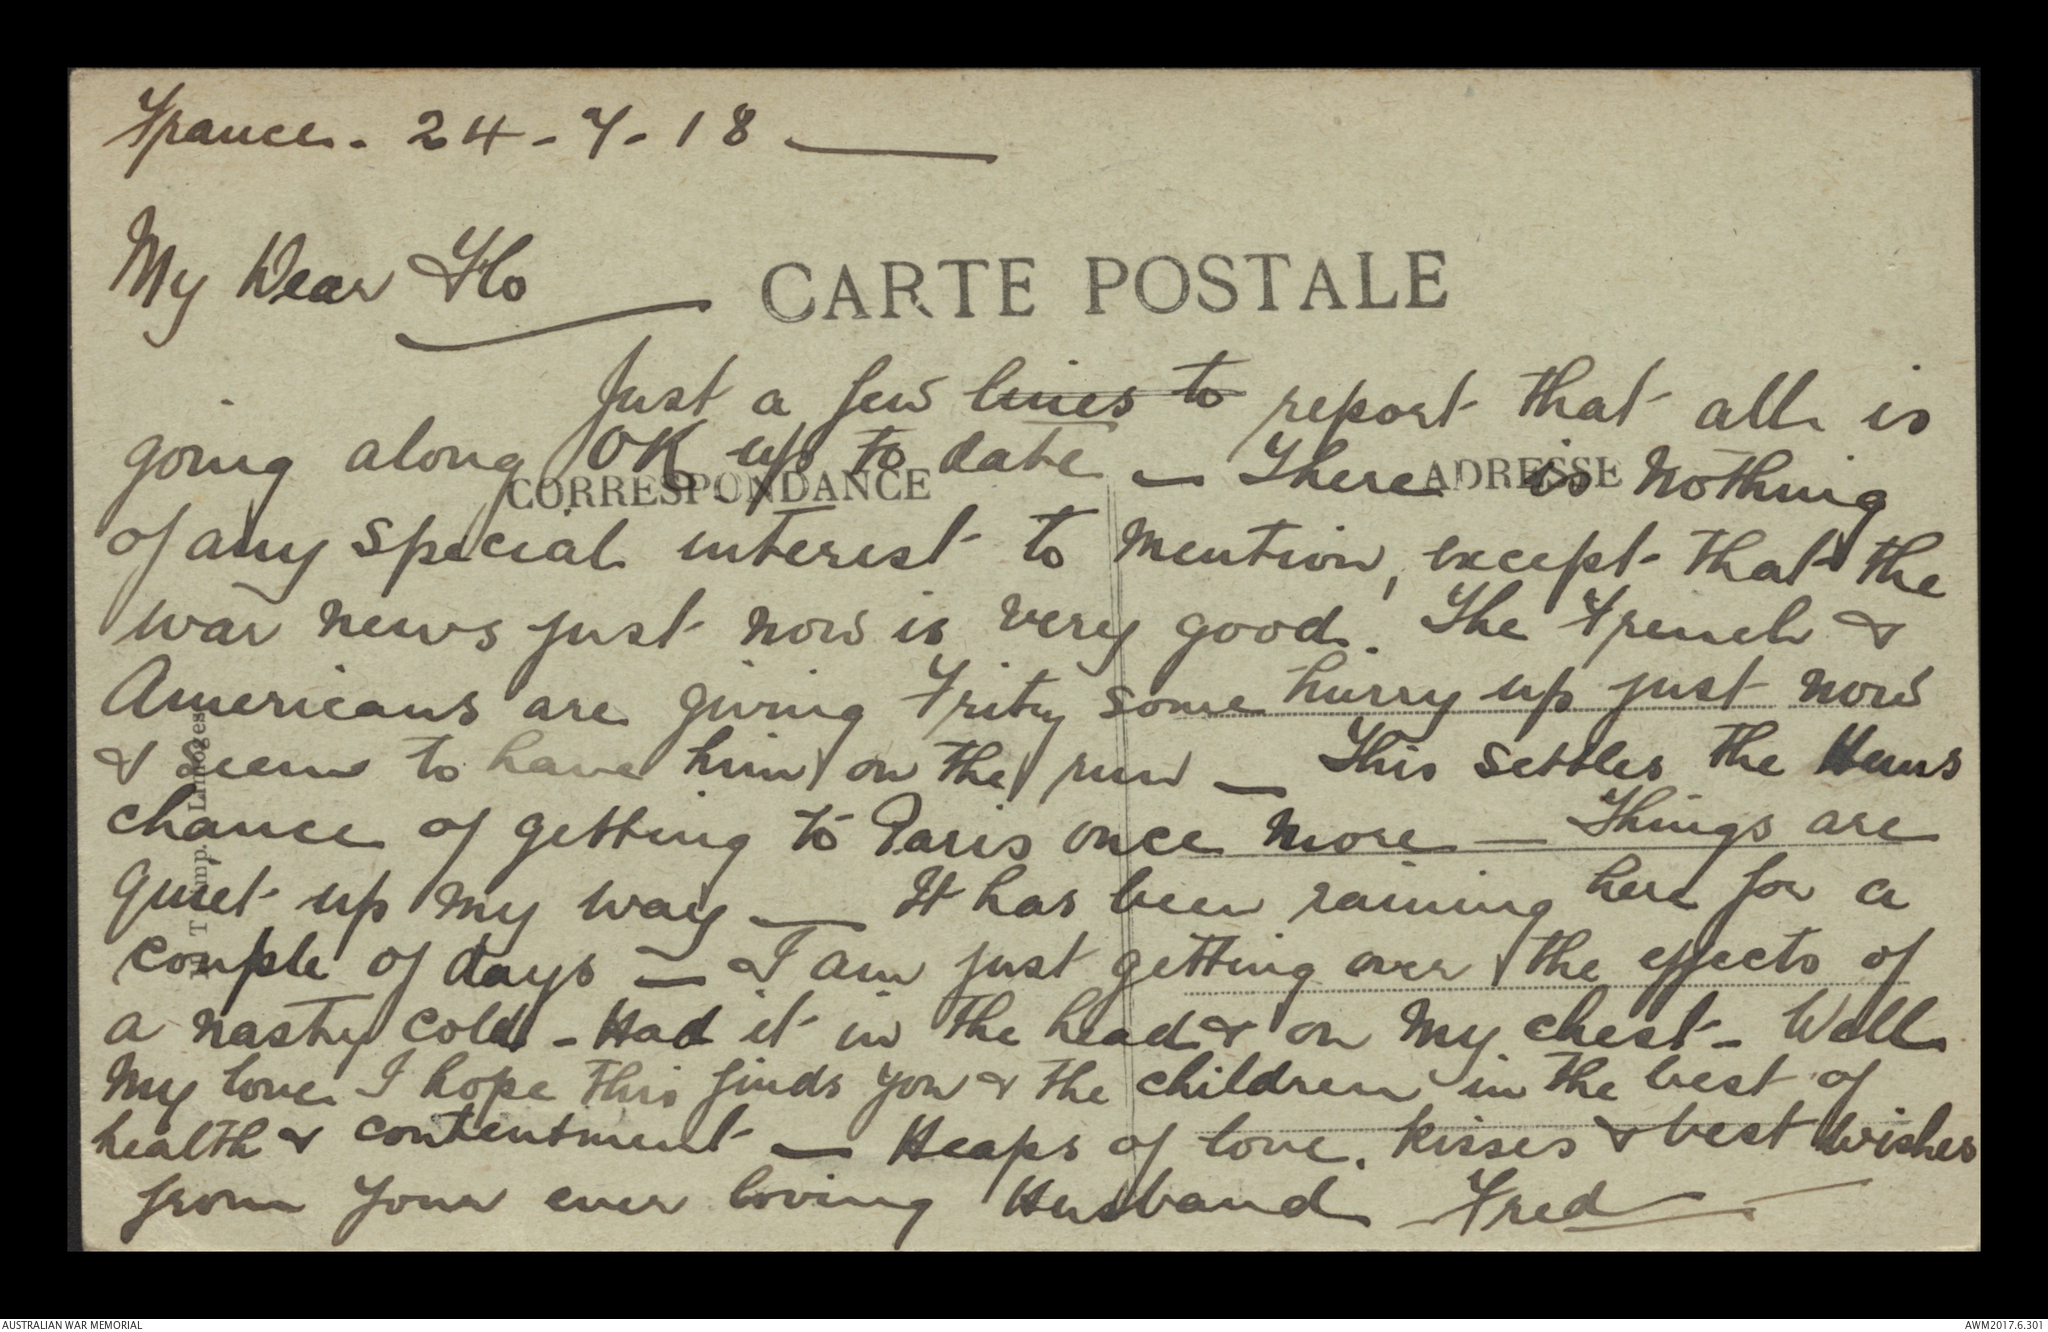 France - 24-7-18
My Dear Flo
CARTE POSTALE
Just a few lines to report that all is
going along OK up to date - There is nothing
CORRESPONDANCE
ADRESSE
of any special interest to mention, except that the
war news just now is very good. The French &
Americans are giving Fritz some hurry up just now
& seem to have him on the run - This settles the Huns
chance of getting to Paris once more - Things are
quiet up my way - It has been raining here for a
couple of days - I am just getting over the effects of
a nasty cold - Had it in the head & on my chest - Well
my love I hope this finds you & the children in the best of
health & contentment - Heaps of love, kisses & best wishes
from your ever loving Husband Fred
Imp. Limoges
AUSTRALIAN WAR MEMORIAL
AWM2017.6.301